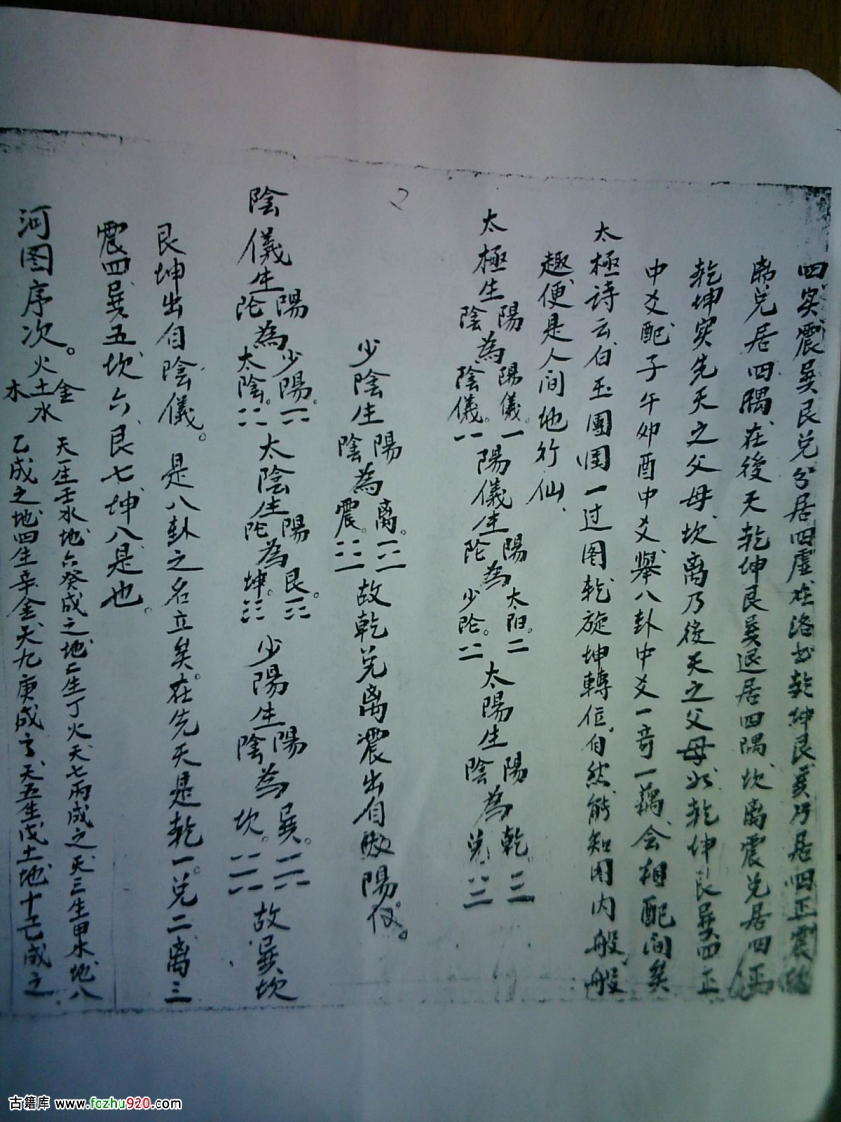 四实震巽艮兑分居四虚在洛书乾坤艮巽乃居四正震
兑居四隅、在後天乾坤艮巽退居四隅、坎离震兑居四
乾坤实先天之父母、坎离乃後天之父母、以乾坤艮巽四正
中爻配子午卯酉中爻、舉八卦中爻一奇一耦、会相配间矣
太極诗云、白玉團圆一过图、乾旋坤轉位、自然能知图内般般
趣、便是人间地行仙、
太極生陽為陽儀。一陰為陰儀。⚋陽儀生陽為太阳。⚌陀為少陀。⚍太陽生陽為乾。☰陰為兑。☱
少陰生陽為离。☲陰為震。☳故乾兑离震出自陽仪。
2
陰儀生陽為少陽。⚎陀為太陰。⚏太陰生陽為艮。☶陀為坤。☷少陽生陽為巽。☴陰為坎。☵故巽坎
艮坤出自陰儀。是八卦之名立矣。在先天是乾一、兑二、离三
震四、巽五、坎六、艮七、坤八、是也。
河图序次。火土水木金
天一生壬水、地六癸成之、地二生丁火、天七丙成之、天三生甲木、地八
乙成之、地四生辛金、天九庚成之、天五生戊土、地十己成之
古籍库 www.fczhu920.com